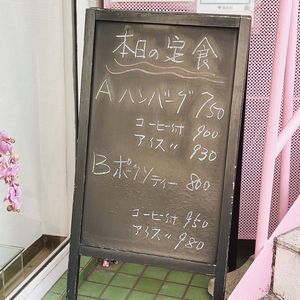 本日の定食
Aハンバーグ 750
コーヒー付 900
アイス〃 930
Bポークソティー 800
コーヒー付 950
アイス〃 980